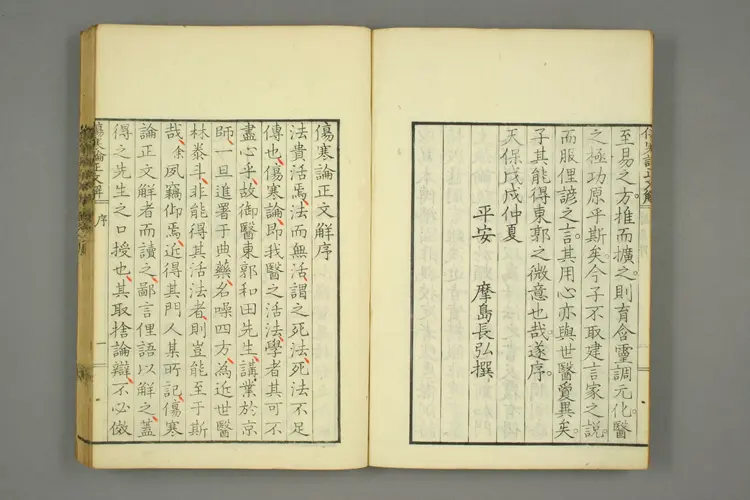 至易之方。推而擴之。則育會靈調元化。醫
之極功。原乎斯矣。今子不取建言家之說。
而服俚諺之言。其用心亦與世醫夐異矣。
子其能得東郭之微意也哉。遂序。
天保戊戌仲夏
平安 摩島長弘撰
傷寒論正文解序
法貴活焉、法而無活、謂之死法、死法不足
傳也、傷寒論、即我醫之活法、學者其可不
盡心乎、故御醫東郭和田先生、講業於京
師、一旦進署于典藥、名噪四方、為近世醫
林泰斗、非能得其活法者、則豈能至于斯
哉、余夙竊仰焉、近得其門人某所記、傷寒
論正文解者而讀之、鄙言俚語以解之、蓋
得之先生之口授也、其取捨論辯、不必倣
傷寒論正文解 序 一